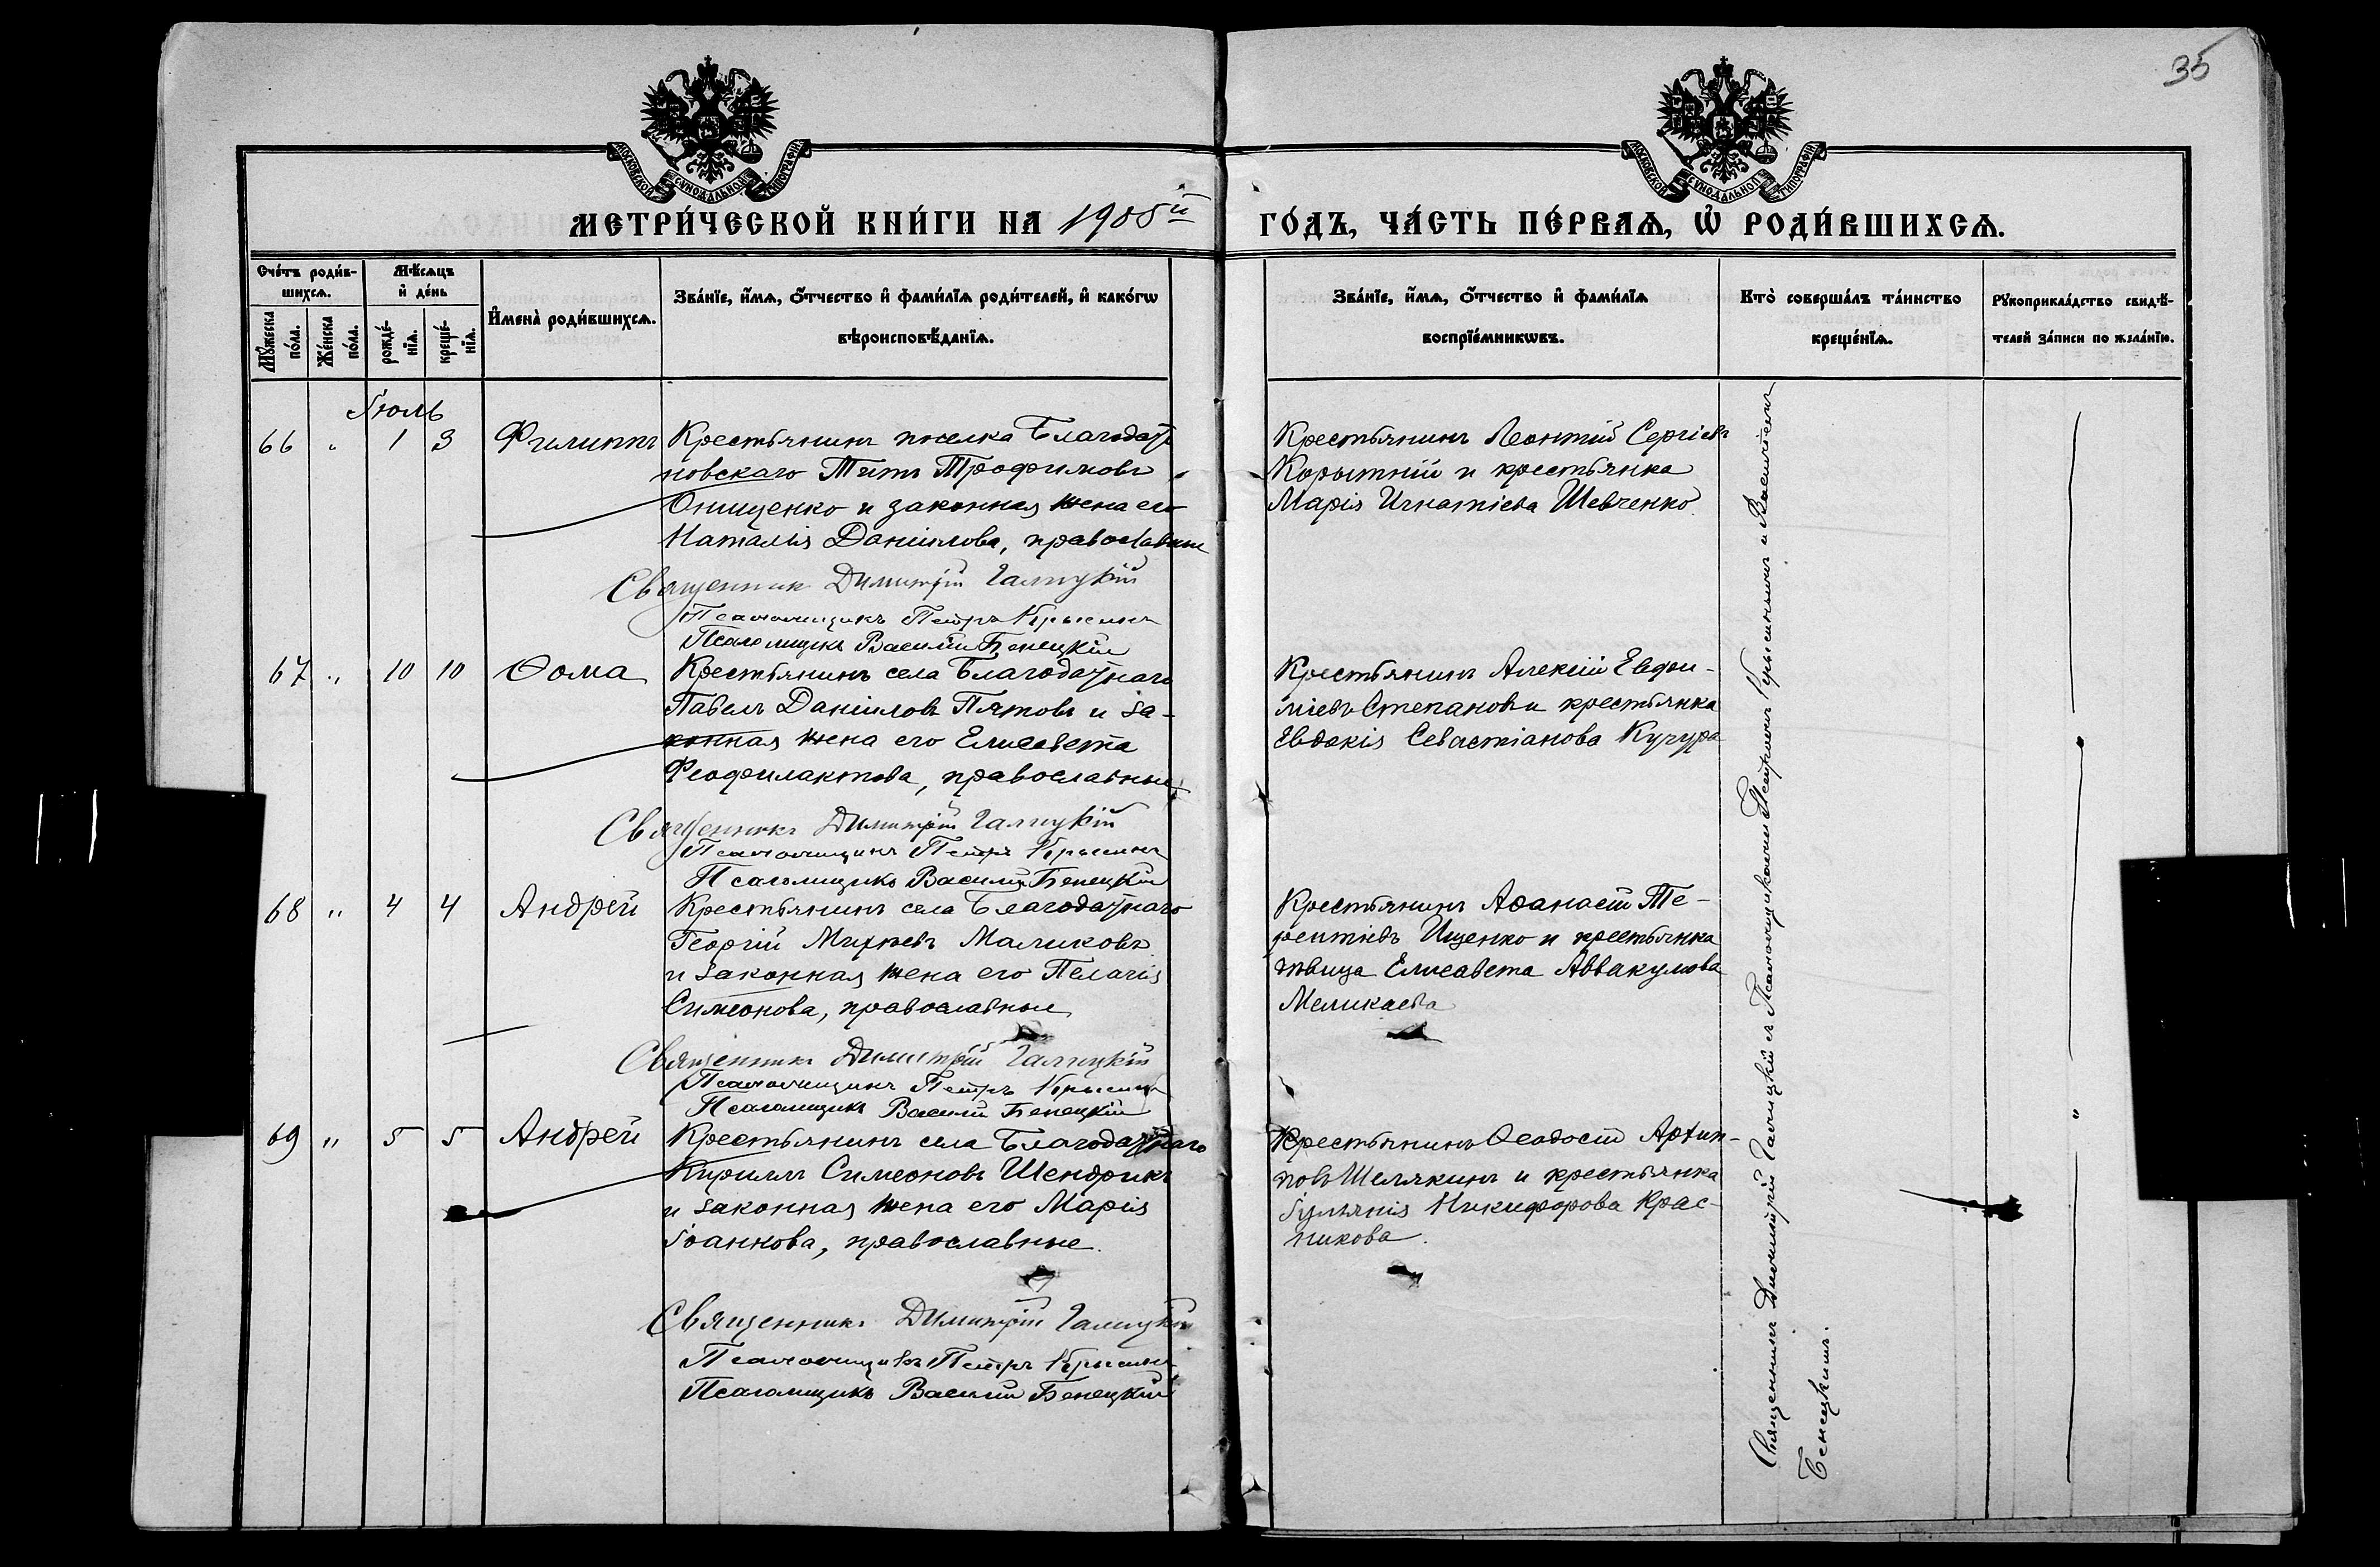 35
МОСКОВСКОЙ СѴНОДАЛЬНОЙ ТИПОГРАФІИ
МОСКОВСКОЙ СѴНОДАЛЬНОЙ ТИПОГРАФІИ
МЕТРИ́ЧЕСКОЙ КНИ́ГИ НА 1905й ГО́ДЪ, ЧА́СТЬ ПЕ́РВАѦ, Ѡ҆ РОДИ́ВШИХСѦ.
Сче́тъ роди́в-
шихсѧ.
Мꙋ́жеска по́ла.
Же́нска по́ла.
Мѣ́сѧцъ
и҆ де́нь
рожде́-
нїѧ.
креще́-
нїѧ.
И҆мена̀ роди́вшихсѧ.
Зва́нїе, и҆́мѧ, ѻ҆́тчество и҆ фами́лїѧ роди́телей, и҆ како́гѡ
вѣроисповѣ́данїѧ.
Зва́нїе, и҆́мѧ, ѻ҆́тчество и҆ фами́лїѧ
воспрїе́мникѡвъ.
Кто̀ соверша́лъ та́инство
креще́нїѧ.
Рꙋкоприкла́дство свидѣ́-
телей за́писи по жела́нїю.
Іюль
66 " 1 3 Филиппъ
Крестьянинъ поселка Благодат-
новскаго Титъ Трофимовъ
Онищенко и законная жена его
Наталія Даніилова, православные
Священник Димитрій Галицкій
Псаломщикъ Петръ Крысинъ
Псаломщикъ Василій Бенецкій
Крестьянинъ Леонтій Сергіевъ
Корытній и крестьянка
Марія Игнатіева Шевченко
67 " 10 10 Ѳома
Крестьянинъ села Благодатнаго
Павелъ Даніиловъ Пятовъ и за-
конная жена его Елисавета
Феофилактова, православные
Священникъ Димитрій Галицкій
Псаломщикъ Петръ Крысинъ
Псаломщикъ Василій Бенецкій
Крестьянинъ Алексій Евфи-
міевъ Степановъ и крестьянка
Евдокія Севастіанова Кучура
68 " 4 4 Андрей
Крестьянинъ села Благодатнаго
Георгій Михѣевъ Маликовъ
и законная жена его Пелагія
Симеонова, православные
Священникъ Димитрій Галицкій
Псаломщикъ Петръ Крысинъ
Псаломщикъ Василій Бенецкій
Крестьянинъ Аѳанасій Те-
рентіевъ Ищенко и крестьянка
дѣвица Елисавета Аввакумова
Меликаева
69 " 5 5 Андрей
Крестьянинъ села Благодатнаго
Кириллъ Симеоновъ Шендрикъ
и законная жена его Марія
Іоаннова, православные.
Священникъ Димитрій Галицкій
Псаломщикъ Петръ Крысинъ
Псаломщикъ Василій Бенецкій
Крестьянинъ Ѳеодосій Архип-
повъ Шелякинъ и крестьянка
Іуліанія Никифорова Крас-
никова.
Священникъ Димитрій Галицкій съ Псаломщиками Петромъ Крысинымъ и Василіемъ
Бенецкимъ.